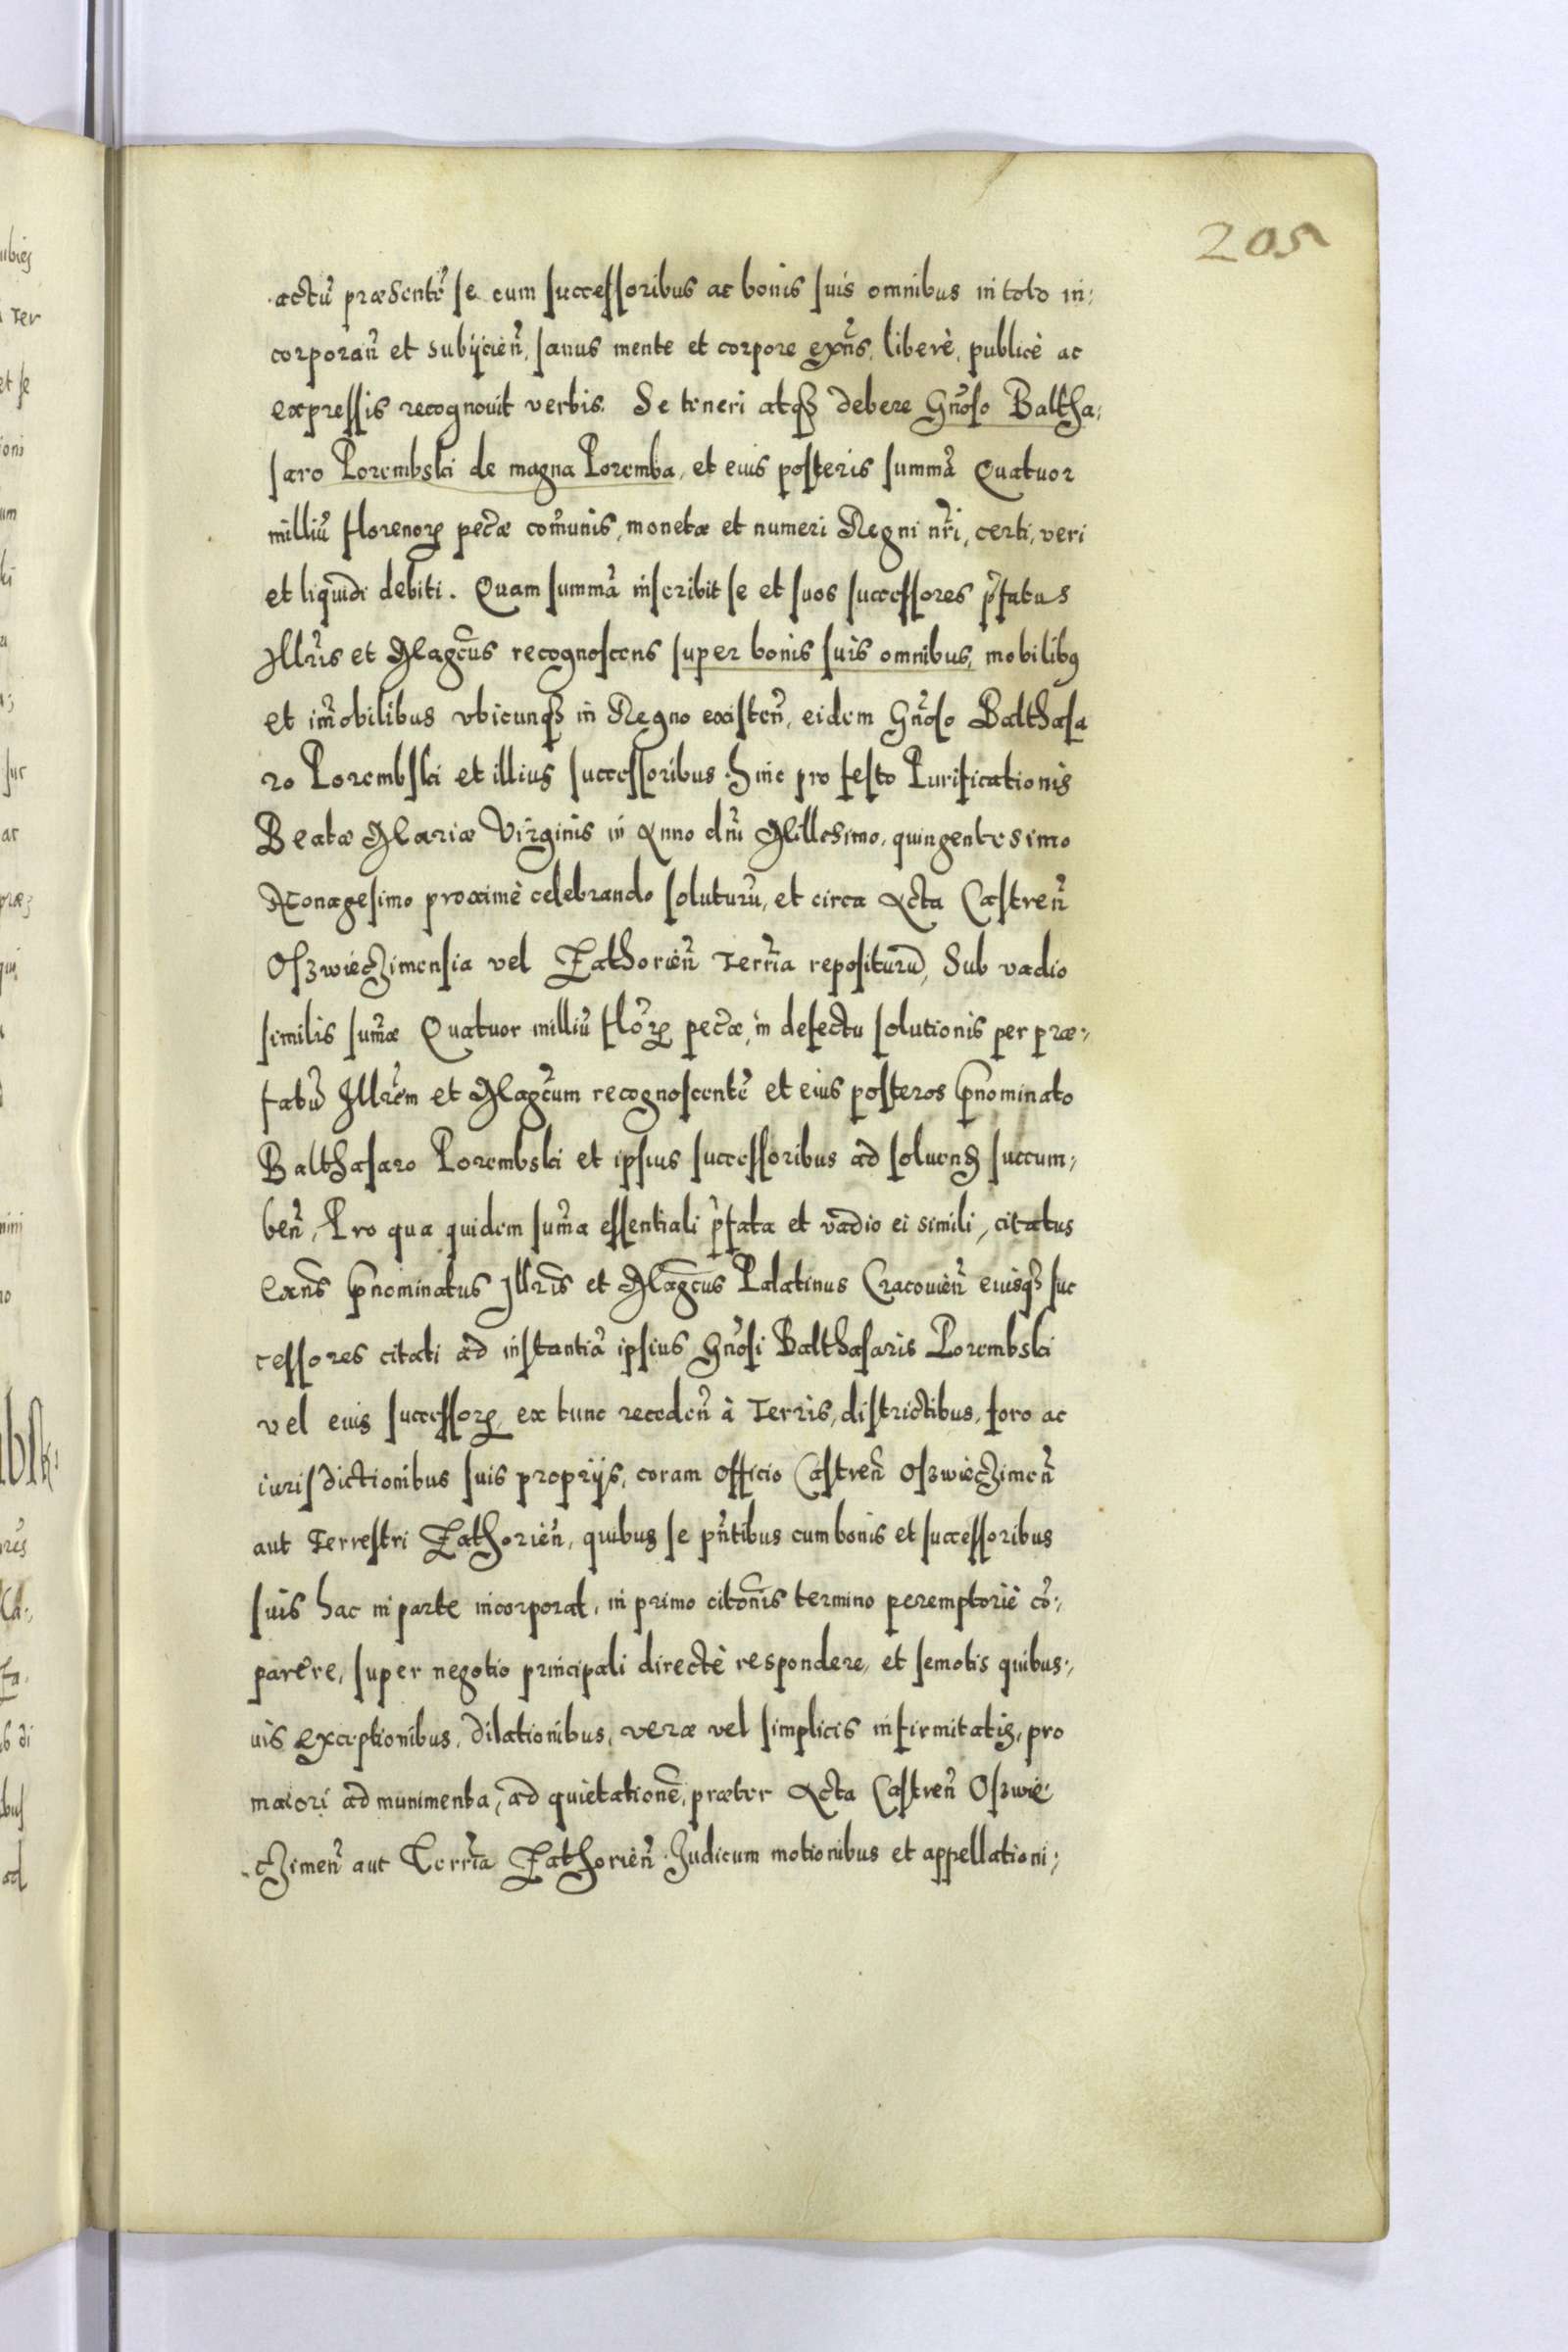 205
actũ præsentẽ se cum successoribus ac bonis suis omnibus in toto in:
corporañ et subijcień, sanus mente et corpore exñs, liberè, publicè ac
expressis recognouit verbis. Se teneri atqꝫ debere Gñoso Baltha:
saro Porembski de magna Poremba, et eius posteris summã Quatuor
milliũ florenoꝝ pec̃æ com̃unis, monetæ et numeri Regni nr̃i, certi, veri
et liquidi debiti. Quam summã inscribit se et suos successores p̃fatus
Illr̃is et Magc̃us recognoscens super bonis suis omnibus, mobilibꝰ
et im̃obilibus vbicunqꝫ in Regno existeñ, eidem Gñoso Balthasa
ro Porembski et illius successoribus hinc pro festo Purificationis
Beatæ Mariæ Virginis in Anno dñi Millesimo, quingentesimo
Nonagesimo proximè celebrando soluturũ, et circa Acta Castreñ
Oszwieczimensia vel Zathorieñ Terr̃ia repositurũ, Sub vadio
similis sum̃æ Quatuor milliũ flõꝝ pec̃æ, in defectu solutionis per præ:
fatũ Illr̃em et Magc̃um recognoscentẽ et eius posteros p̃nominato
Balthasaro Porembski et ipsius successoribus ad soluenđ succum:
beñ, Pro qua quidem sum̃a essentiali p̃fata et vadio ei simili, citatus
exñs p̃nominatus Illr̃is et Magc̃us Palatinus Cracouieñ eiusqꝫ suc
cessores citati ad instantiã ipsius Gñosi Balthasaris Porembski
vel eius successoꝝ, ex tunc recedeñ à Terris, districtibus, foro ac
iurisdictionibus suis proprijs, coram officio Castreñ Oszwieczimeñ
aut Terrestri Zathorieñ, quibus se pñtibus cum bonis et successoribus
suis hac in parte incorporat, in primo citõnis termino peremptoriè cõ:
parere, super negotio principali directè respondere, et semotis quibus:
uis exceptionibus, dilationibus, veræ vel simplicis infirmitatis, pro
maiori ad munimenta, ad quietationẽ, præter Acta Castreñ Oszwie:
czimeñ aut Terr̃ia Zathorieñ Judicum motionibus et appellationi: